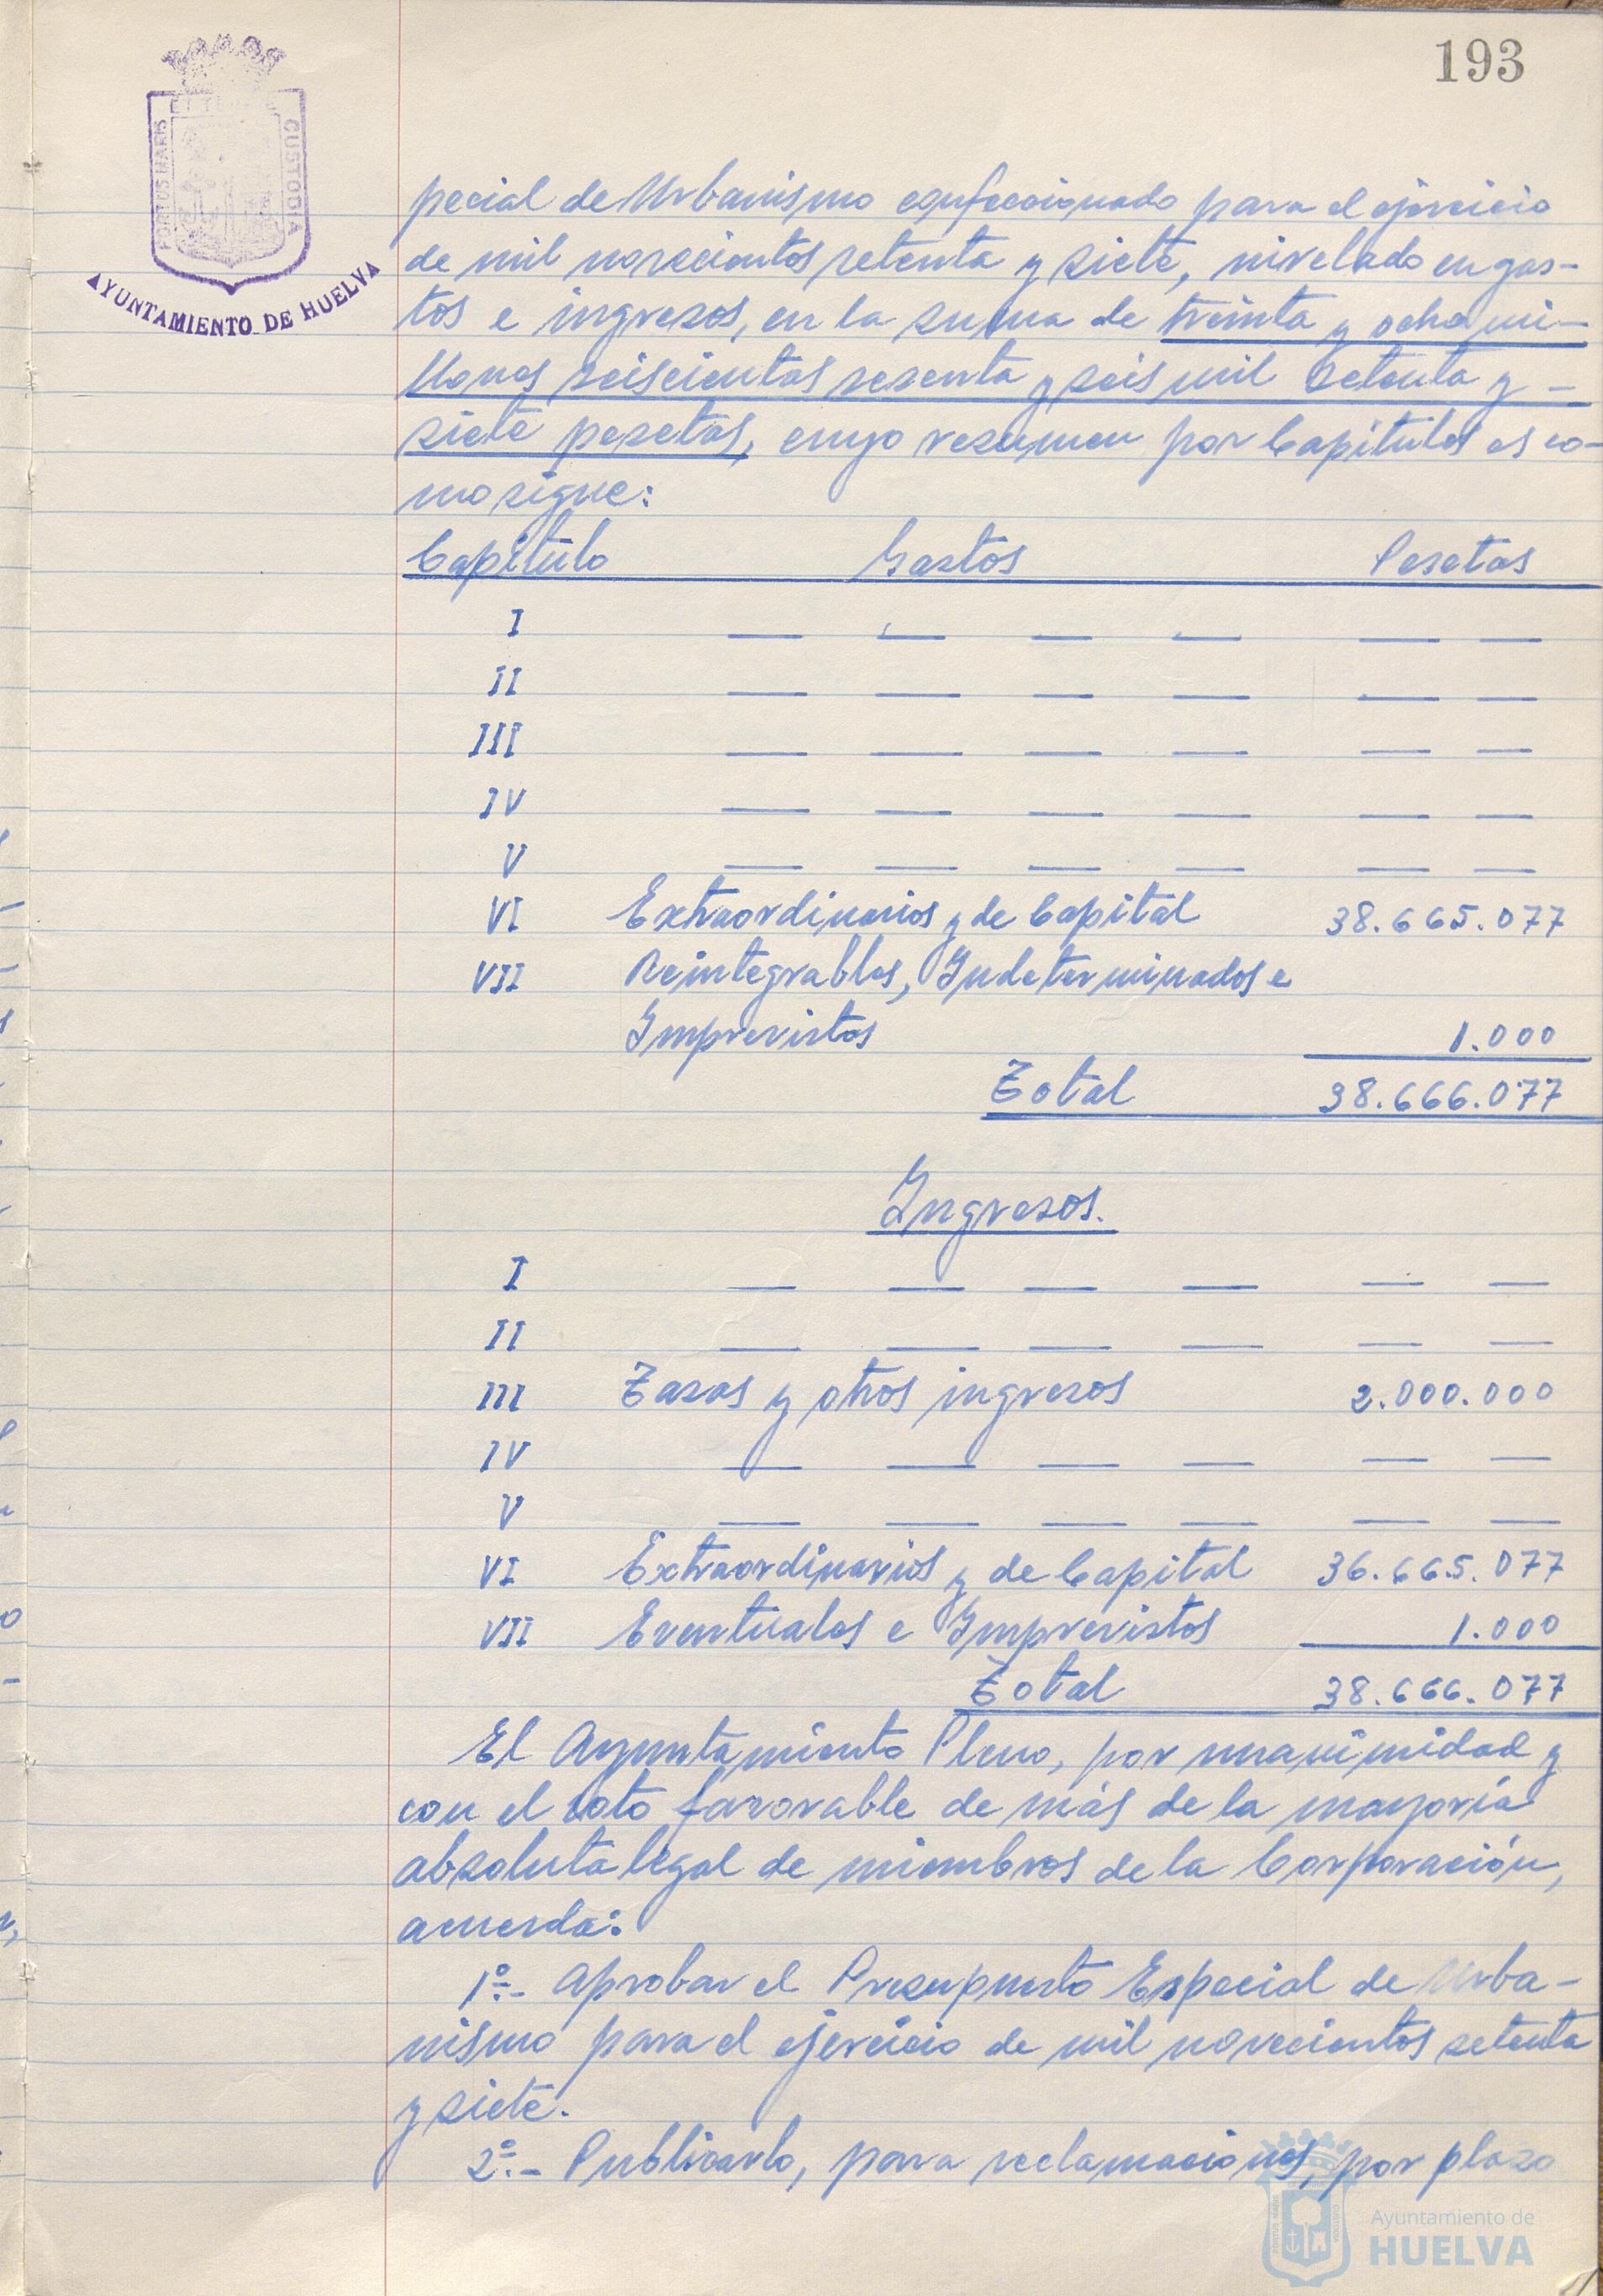 193
PORTUS MARIS ET TERRE CUSTODIA
AYUNTAMIENTO DE HUELVA
pecial de Urbanismo confeccionado para el ejercicio
de mil novecientos setenta y siete, nivelado en gas-
tos e ingresos, en la suma de treinta y ocho mi-
llones seiscientas sesenta y seis mil setenta y -
siete pesetas, cuyo resumen por Capitulos es co-
mo sigue:
Capitulo Gastos Pesetas
I — — — — — —
II — — — — — —
III — — — — — —
IV — — — — — —
V — — — — — —
VI Extraordinarios y de Capital 38.665.077
VII Reintegrables, Indeterminados e
Imprevistos 1.000
Total 38.666.077
Ingresos.
I — — — — — —
II — — — — — —
III Tasas y otros ingresos 2.000.000
IV — — — — — —
V — — — — — —
VI Extraordinarios y de Capital 36.665.077
VII Eventuales e Imprevistos 1.000
Total 38.666.077
El Ayuntamiento Pleno, por unanimidad y
con el voto favorable de más de la mayoría
absoluta legal de miembros de la Corporación,
acuerda:
1º.- Aprobar el Presupuesto Especial de Urba-
nismo para el ejercicio de mil novecientos setenta
y siete.
2º.- Publicarlo, para reclamaciones, por plazo
Ayuntamiento de
HUELVA